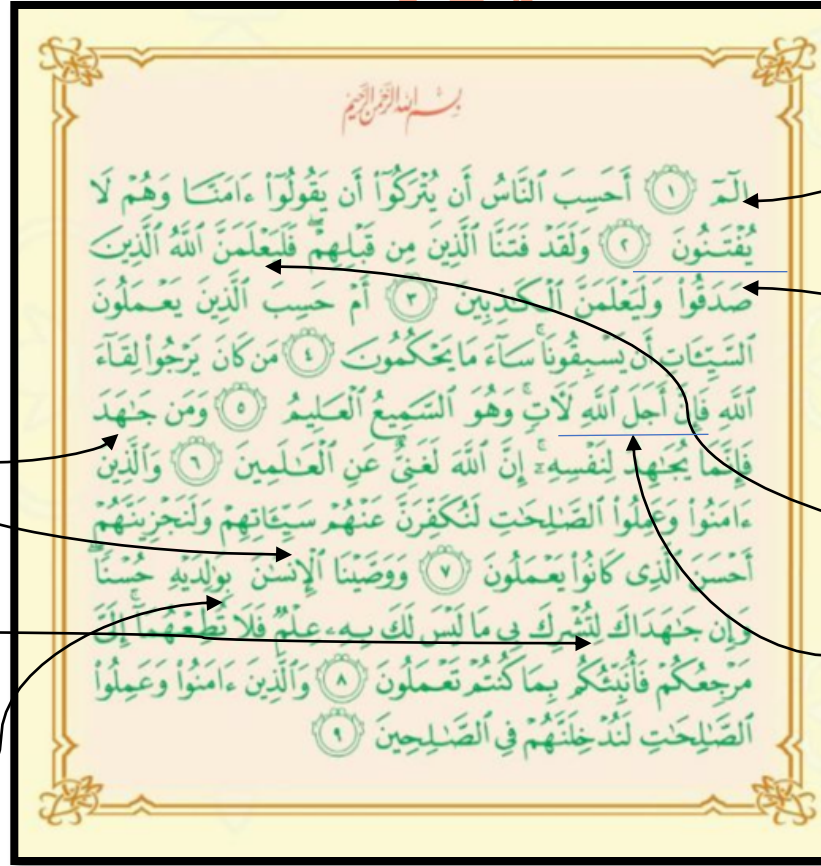 بسم الله الرحمن الرحيم
الٓمٓ ١ أَحَسِبَ ٱلنَّاسُ أَن يُتْرَكُوٓا۟ أَن يَقُولُوٓا۟ ءَامَنَّا وَهُمْ لَا
يُفْتَنُونَ ٢ وَلَقَدْ فَتَنَّا ٱلَّذِينَ مِن قَبْلِهِمْ ۖ فَلَيَعْلَمَنَّ ٱللَّهُ ٱلَّذِينَ
صَدَقُوا۟ وَلَيَعْلَمَنَّ ٱلْكَـٰذِبِينَ ٣ أَمْ حَسِبَ ٱلَّذِينَ يَعْمَلُونَ
ٱلسَّيِّـَٔاتِ أَن يَسْبِقُونَا ۚ سَآءَ مَا يَحْكُمُونَ ٤ مَن كَانَ يَرْجُوا۟ لِقَآءَ
ٱللَّهِ فَإِنَّ أَجَلَ ٱللَّهِ لَـَٔاتٍ ۚ وَهُوَ ٱلسَّمِيعُ ٱلْعَلِيمُ ٥ وَمَن جَـٰهَدَ
فَإِنَّمَا يُجَـٰهِدُ لِنَفْسِهِۦٓ ۚ إِنَّ ٱللَّهَ لَغَنِىٌّ عَنِ ٱلْعَـٰلَمِينَ ٦ وَٱلَّذِينَ
ءَامَنُوا۟ وَعَمِلُوا۟ ٱلصَّـٰلِحَـٰتِ لَنُكَفِّرَنَّ عَنْهُمْ سَيِّـَٔاتِهِمْ وَلَنَجْزِيَنَّهُمْ
أَحْسَنَ ٱلَّذِى كَانُوا۟ يَعْمَلُونَ ٧ وَوَصَّيْنَا ٱلْإِنسَـٰنَ بِوَٰلِدَيْهِ حُسْنًا ۖ
وَإِن جَـٰهَدَاكَ لِتُشْرِكَ بِى مَا لَيْسَ لَكَ بِهِۦ عِلْمٌ فَلَا تُطِعْهُمَآ ۚ إِلَىَّ
مَرْجِعُكُمْ فَأُنَبِّئُكُم بِمَا كُنتُمْ تَعْمَلُونَ ٨ وَٱلَّذِينَ ءَامَنُوا۟ وَعَمِلُوا۟
ٱلصَّـٰلِحَـٰتِ لَنُدْخِلَنَّهُمْ فِى ٱلصَّـٰلِحِينَ ٩